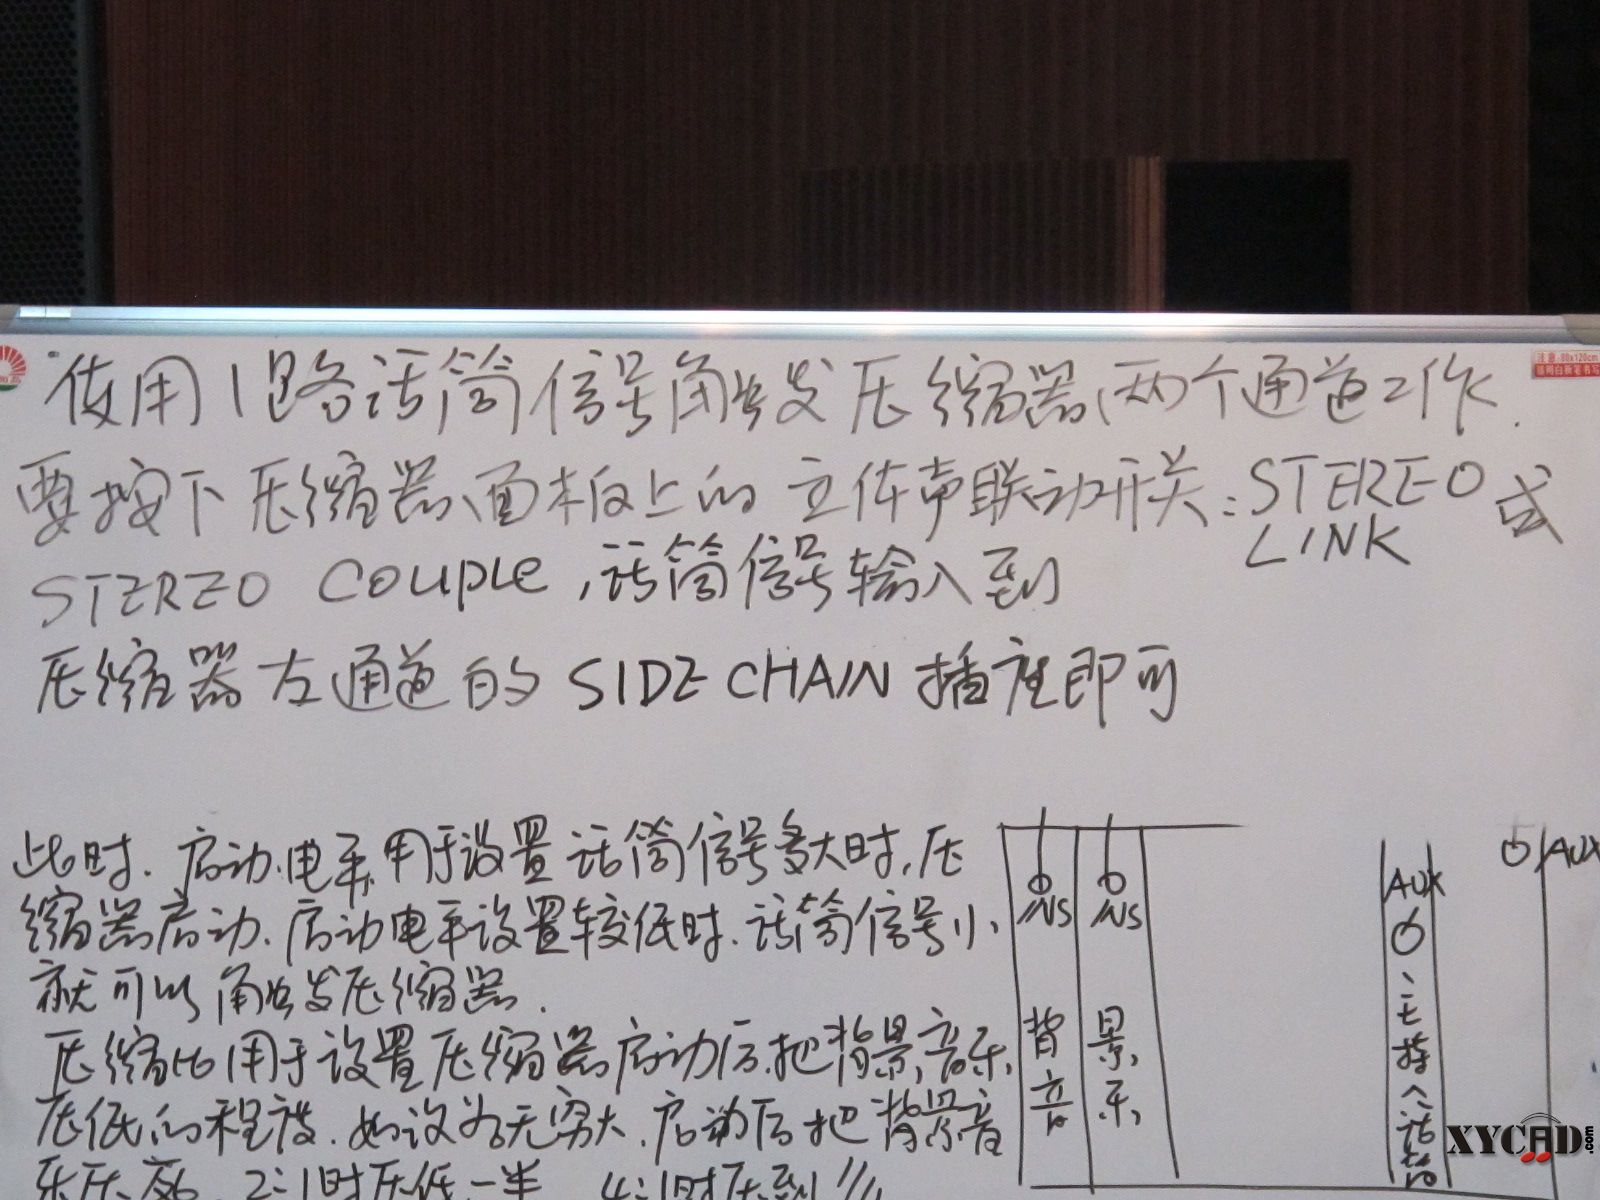 使用1路话筒信号触发压缩器两个通道工作.
要按下压缩器面板上的立体声联动开关:STEREO LINK 或
STEREO COUPLE,话筒信号输入到
压缩器左通道的SIDE CHAIN插座即可
此时.启动电平用于设置话筒信号多大时,压
缩器启动.启动电平设置较低时.话筒信号小、
就可以触发压缩器.
压缩比用于设置压缩器启动后.把背景音乐
压低的程度.如设为无穷大.启动后把背景音
乐压底.2:1时压低一半 4:1时压到1/
INS
INS
背景
音乐
AUX
主持人话筒
AUX
注意:80x120cm
XYCAD.com